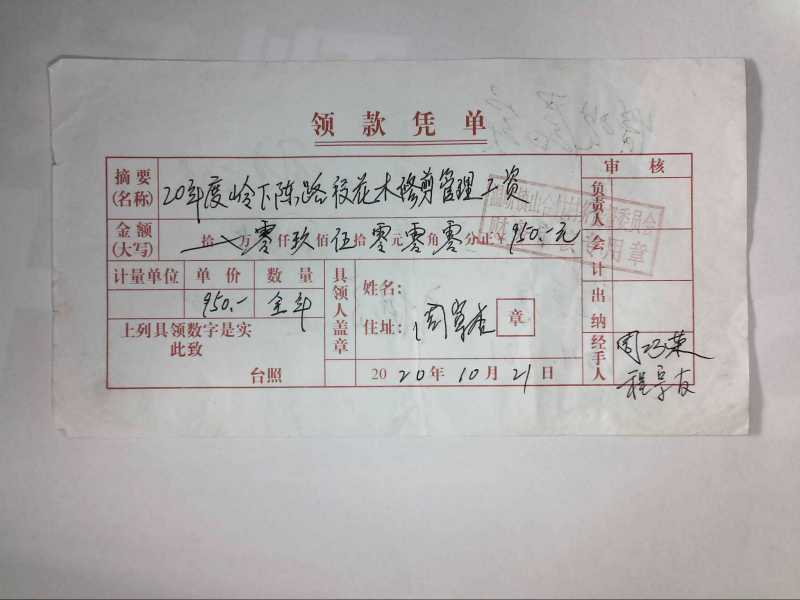 领款凭单
摘要(名称) 20年度岭下陈路段花木修剪管理工资
审核
金额(大写) 拾万零仟玖佰伍拾零元零角零分正¥950.-元
计量单位 单价 数量
950.- 全年
上列具领数字是实
此致
台照
具领人盖章
姓名:
住址: 周
章
2020年10月21日
负责人
会计
出纳
经手人 周巧荣
程
财 专用章